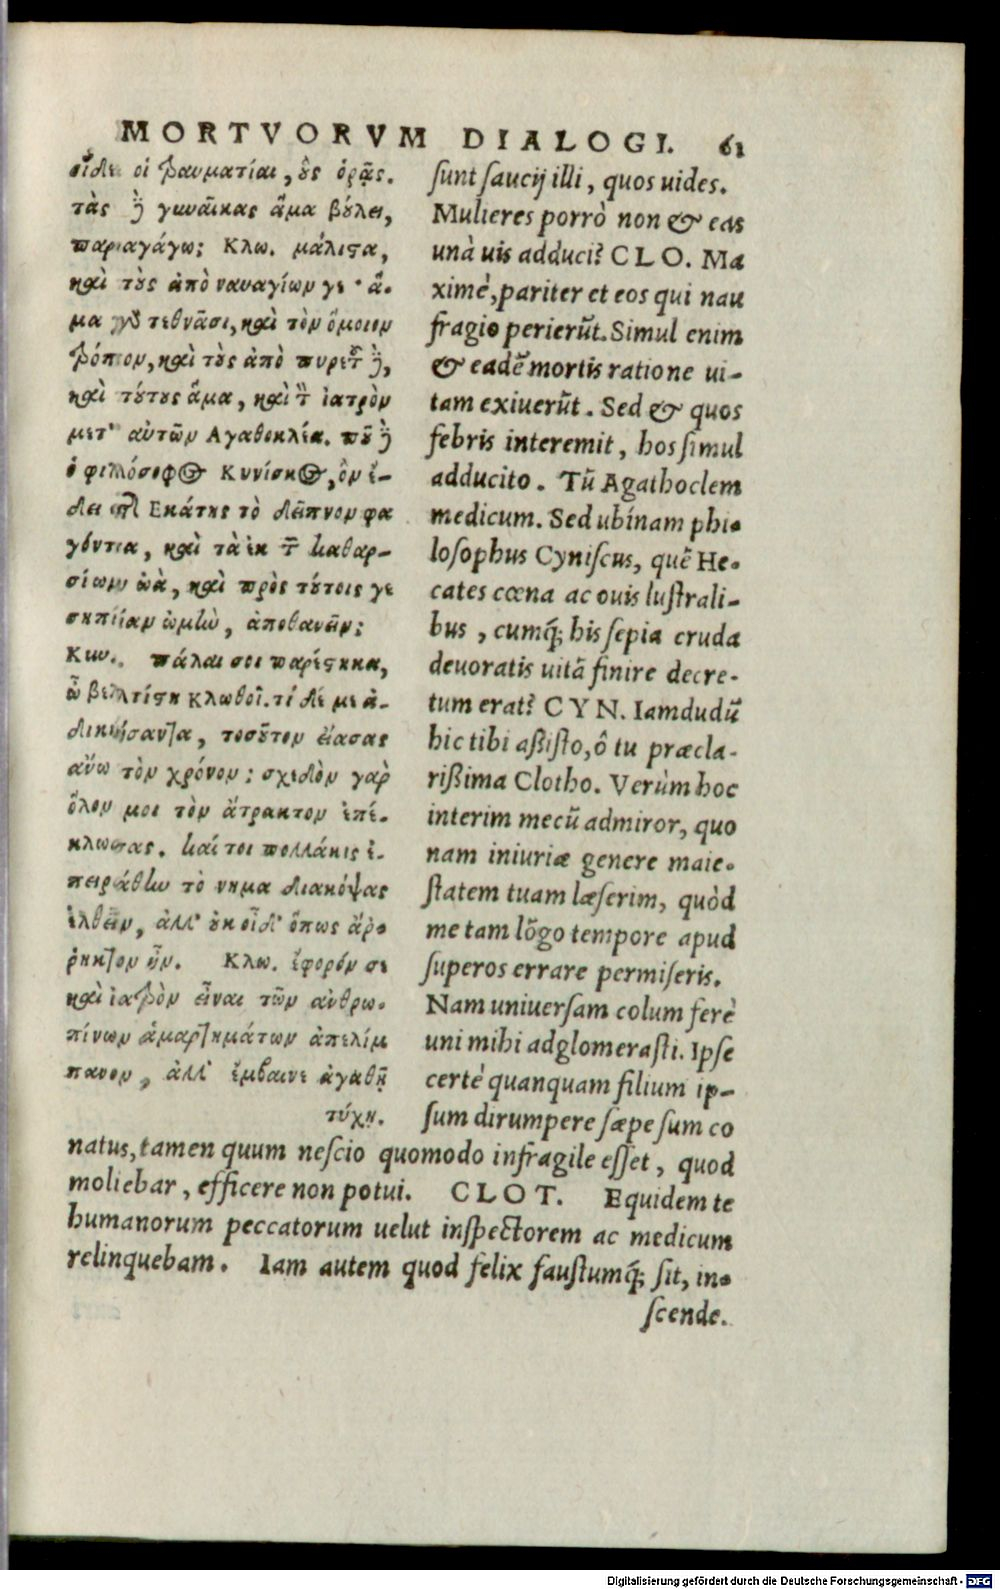 MORTVORVM DIALOGI. 61
οἵδε οἱ τραυματίαι, οὓς ὁρᾷς.
τὰς δὲ γυναῖκας ἅμα βούλει,
παραγάγω; Κλω. μάλιστα,
καὶ τοὺς ἀπὸ ναυαγίων γε· ἅ-
μα γὰρ τεθνᾶσι, καὶ τὸν ὅμοιον
τρόπον, καὶ τοὺς ἀπὸ πυρετοῦ δὲ,
καὶ τούτους ἅμα, καὶ τὸν ἰατρὸν
μετ' αὐτῶν Αγαθοκλέα. ποῦ δὲ
ὁ φιλόσοφος Κυνίσκος, ὃν ἔ-
δει τῆς Εκάτης τὸ δεῖπνον φα
γόντα, καὶ τὰ ἐκ τῶν καθαρ-
σίων ὠὰ, καὶ πρὸς τούτοις γε
σηπίαν ὠμὴν, ἀποθανεῖν;
Κυν. πάλαι σοι παρέστηκα,
ὦ βελτίστη Κλωθοῖ. τί δέ με ἀ-
δικήσαντα, τοσοῦτον εἴασας
ἄνω τὸν χρόνον; σχεδὸν γὰρ
ὅλον μοι τὸν ἄτρακτον ἐπέ-
κλωσας. καί τοι πολλάκις ἐ-
πειράθην τὸ νῆμα διακόψας
ἐλθεῖν, ἀλλ' οὐκ οἶδ' ὅπως ἄῤ-
ῥηκτον ἦν. Κλω. ἐφορόν σε
καὶ ἰατρὸν εἶναι τῶν ἀνθρω-
πίνων ἁμαρτημάτων ἀπελίμ
πανον, ἀλλ' ἔμβαινε ἀγαθῇ
τύχῃ.
sunt saucij illi, quos uides.
Mulieres porrò non & eas
unà uis adduci? CLO. Ma
ximè, pariter et eos qui nau
fragio perierũt. Simul enim
& eadẽ mortis ratione ui-
tam exiuerũt. Sed & quos
febris interemit, hos simul
adducito. Tũ Agathoclem
medicum. Sed ubínam phi-
losophus Cyniscus, quẽ He-
cates cœna ac ouis lustrali-
bus, cumq́; his sepia cruda
deuoratis uitã finire decre-
tum erat? CYN. Iamdudũ
hic tibi aßisto, ô tu præcla-
rißima Clotho. Verùm hoc
interim mecũ admiror, quo
nam iniuriæ genere maie-
statem tuam læserim, quòd
me tam lõgo tempore apud
superos errare permiseris.
Nam uniuersam colum ferè
uni mihi adglomerasti. Ipse
certè quanquam filium ip-
sum dirumpere sæpe sum co
natus, tamen quum nescio quomodo infragile esset, quod
moliebar, efficere non potui. CLOT. Equidem te
humanorum peccatorum uelut inspectorem ac medicum
relinquebam. Iam autem quod felix faustumq́; sit, in-
scende.
Digitalisierung gefördert durch die Deutsche Forschungsgemeinschaft - DFG